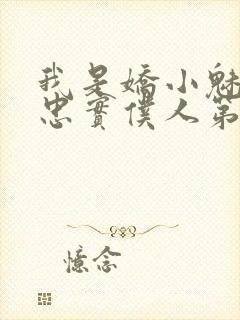 我是嬌小魅
忠實僕人第
憶念